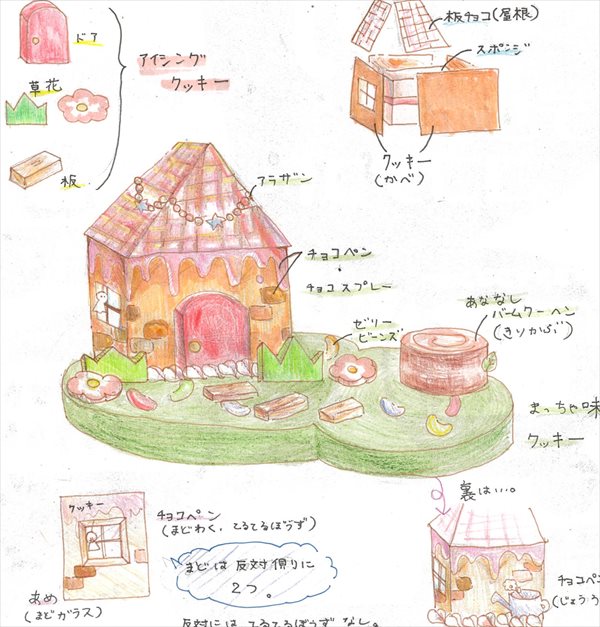 ドア
草花
板
アイシング
クッキー
板チョコ(屋根)
スポンジ
クッキー
(かべ)
アラザン
チョコペン
チョコスプレー
ゼリー
ビーンズ
あななし
バームクーヘン
(きりかぶ)
まっちゃ味
クッキー
裏は…。
クッキー
チョコペーン
(まどわく、てるてるぼうず)
あめ
(まどガラス)
まどは反対側りに
2つ。
反対には てるてるぼうずなし。
チョコペ
(じょうろ